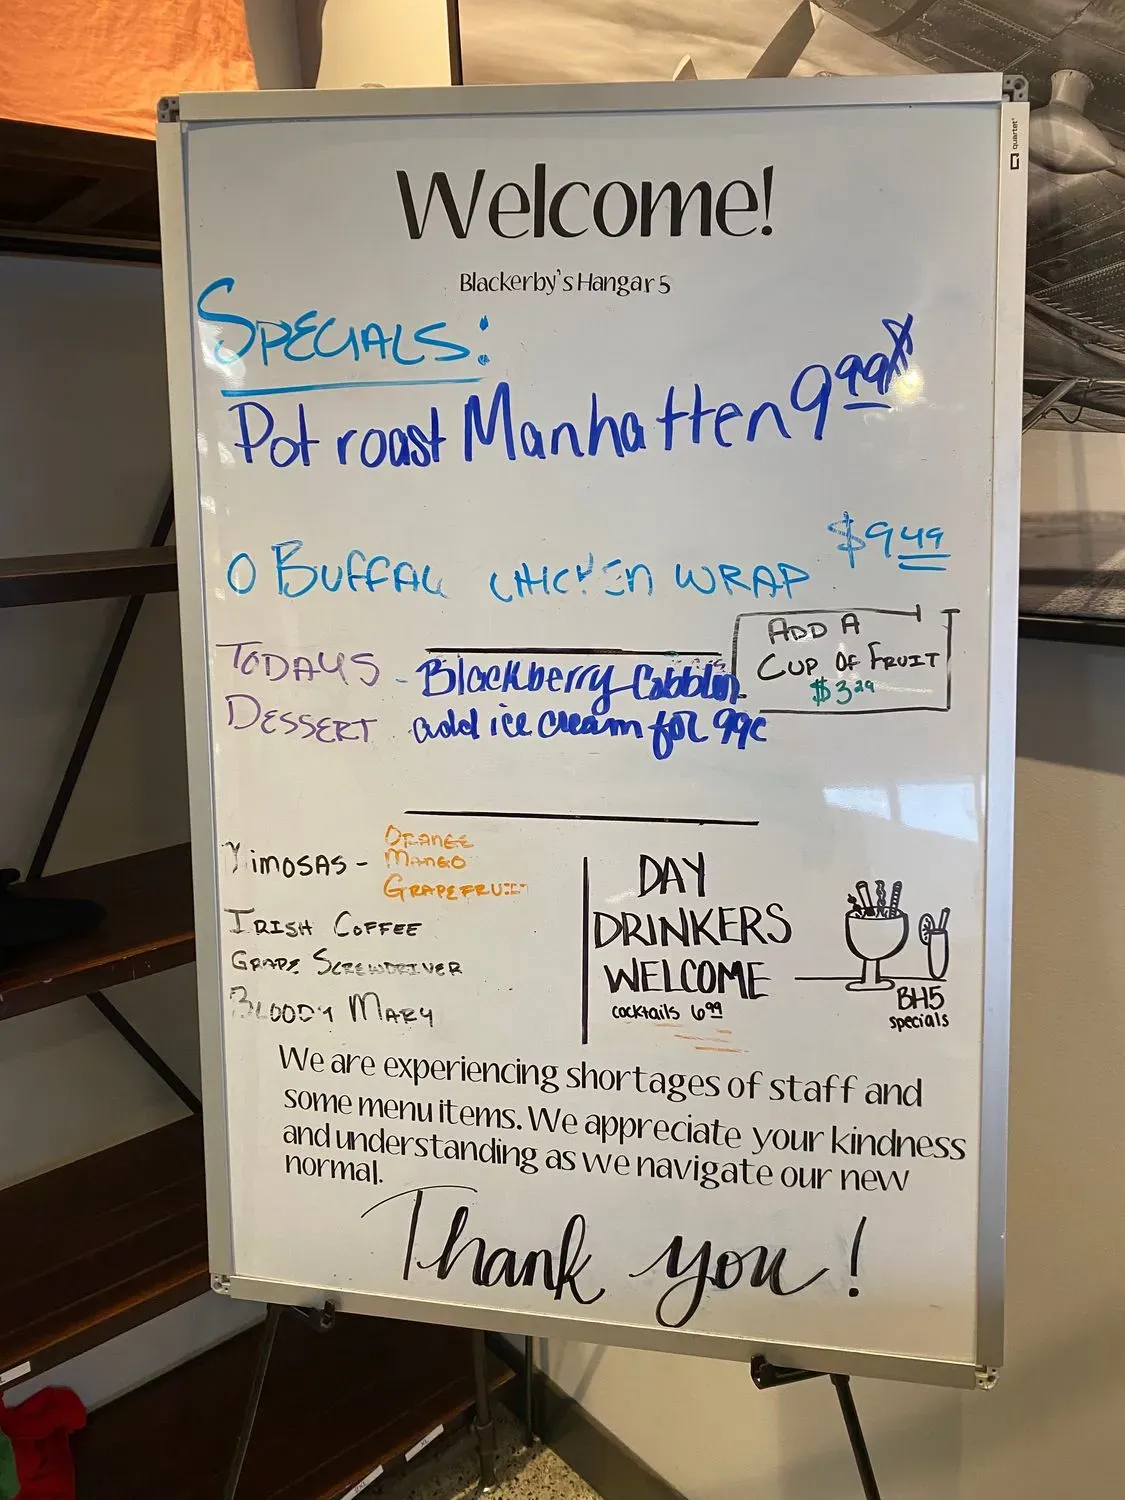 Welcome!
Blackerby's Hangar 5
SPECIALS:
Pot roast Manhatten 9 99
O BUFFAL CHICKEN WRAP $9 49
ADD A
CUP OF FRUIT
$3 29
TODAYS - Blackberry
DESSERT add ice cream for 99¢
MIMOSAS - ORANGE
MANGO
GRAPEFRUIT
IRISH COFFEE
GRAPE SCREWDRIVER
BLOODY MARY
DAY
DRINKERS
WELCOME
cocktails 6 99
BH5
specials
We are experiencing shortages of staff and
some menu items. We appreciate your kindness
and understanding as we navigate our new
normal.
Thank you!
quartet
XL